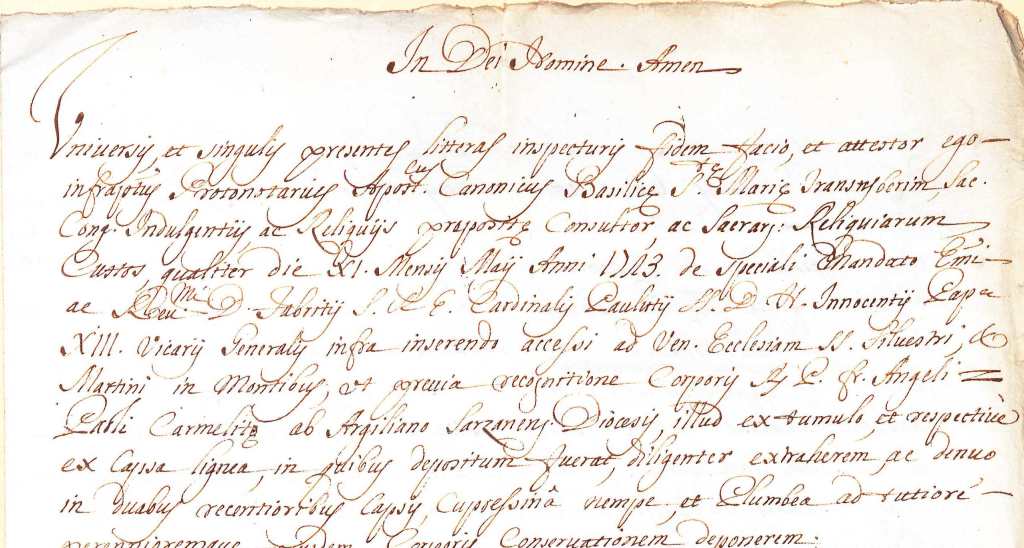 In Dei Nomine. Amen
Universis, et singulis presentes litteras inspecturis fidem facio, et attestor ego
infrascriptus Protonotarius Apost.cus Canonicus Basilicę S.tę Marię Transtyberim, Sac.
Cong. Indulgentijs, ac Reliquijs prępositę Consultor, ac Sacrar: Reliquiarum
Custos, qualiter die XI. Mensis Maij Anni 1723. de speciali Mandato Emi
ac Rev.mi D. Fabritij S. R. E. Cardinalis Paulutij SS. D. N. Innocentij Papę
XIII. Vicarij Generalis infra inserendo accessi ad Ven. Ecclesiam SS. Silvestri, &
Martini in Montibus, ut previa recognitione Corporis P. fr. Angeli
Pauli Carmelitę ab Argiliano Sarzanens. Diocesis, illud ex tumulo, et respectivè
ex Capsa lignea, in quibus depositum fuerat, diligenter extraherem, ac denuo
in duabus recentioribus Capsis, Cupressinâ nempe, et Plumbea ad tutiorē
perennioremque eiusdem Corporis Conservationem deponerem: